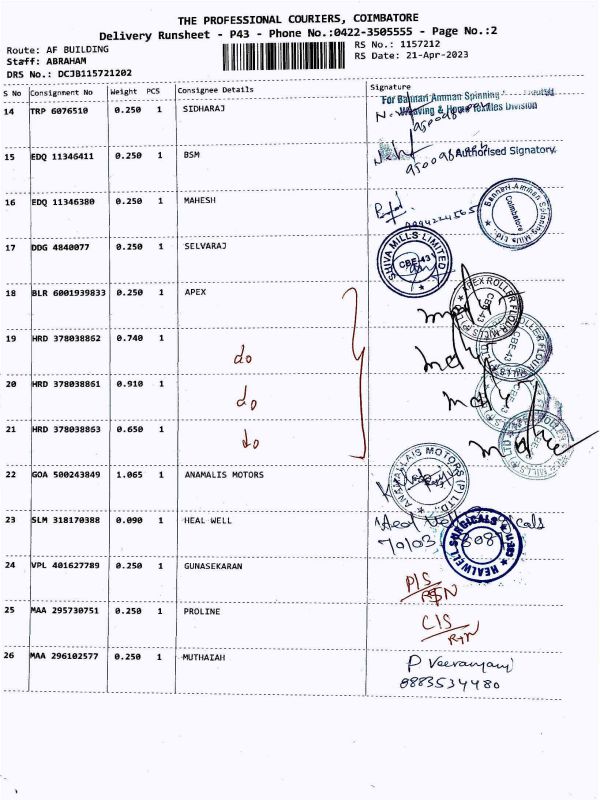 THE PROFESSIONAL COURIERS, COIMBATORE
Delivery Runsheet - P43 - Phone No.:0422-3505555 - Page No.:2
Route: AF BUILDING
RS No.: 1157212
Staff: ABRAHAM
RS Date: 21-Apr-2023
DRS No.: DCJB115721202
S No Consignment No Weight PCS Consignee Details Signature
14 TRP 6076510 0.250 1 SIDHARAJ
For Bannari Amman Spinning
Weaving & Home Textiles Division
15 EDQ 11346411 0.250 1 BSM
Authorised Signatory.
16 EDQ 11346380 0.250 1 MAHESH
Bannari Amman Spinning Mills Ltd.
Coimbatore
17 DDG 4840077 0.250 1 SELVARAJ
SHIVA MILLS LIMITED
CBE-43
18 BLR 6001939833 0.250 1 APEX
APEX ROLLER FLOUR MILLS (P) LTD
CBE-43
19 HRD 378038862 0.740 1 do
CBE-43
20 HRD 378038861 0.910 1 do
21 HRD 378038863 0.650 1 do
22 GOA 500243849 1.065 1 ANAMALIS MOTORS
ANAMALLAIS MOTORS (P) LTD
23 SLM 318170388 0.090 1 HEAL WELL
REALWELL SURGICALS
24 VPL 401627789 0.250 1 GUNASEKARAN
P/S
25 MAA 295730751 0.250 1 PROLINE
C/S
RTN
26 MAA 296102577 0.250 1 MUTHAIAH
0883534480